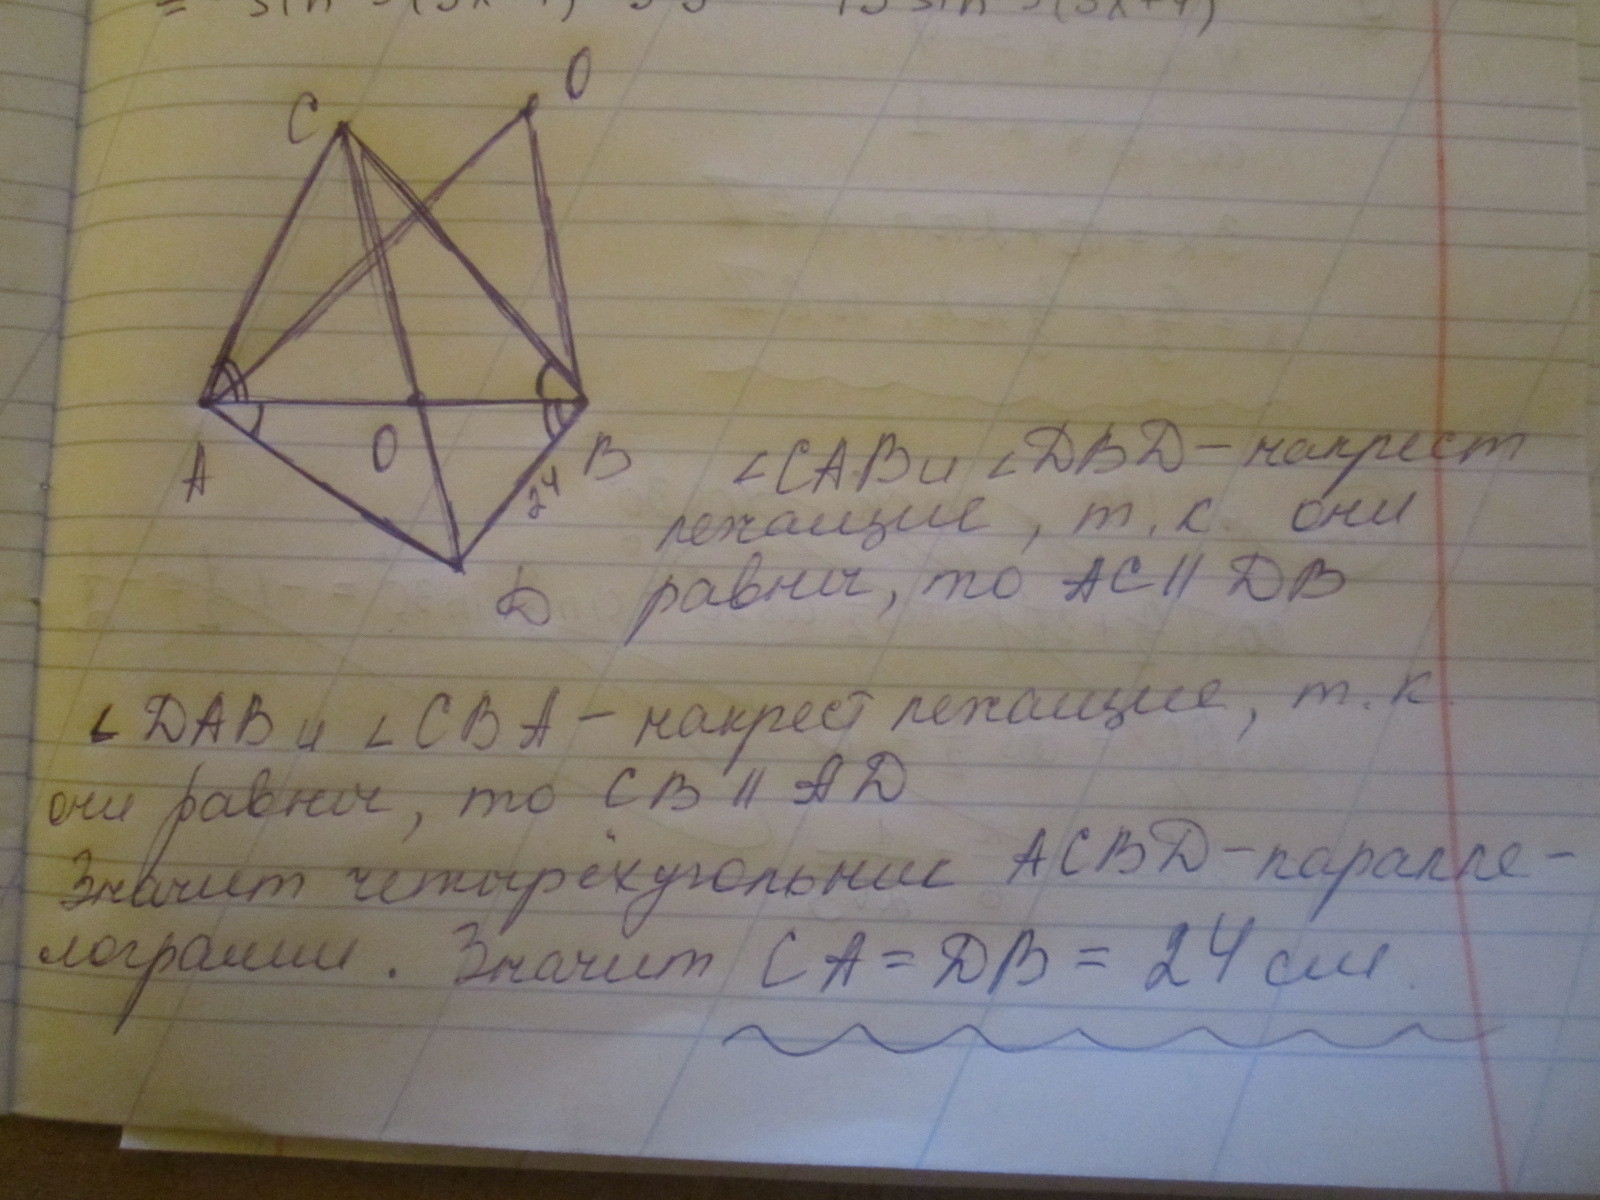 C
O
A
O
B
24
D
∠CAB и ∠DBD – накрест
лежащие, т.к. они
равны, то AC || DB
∠DAB и ∠CBA – накрест лежащие, т.к.
они равны, то CB || AD
Значит четырёхугольник ACBD – паралле-
лограмм. Значит CA = DB = 24 см.